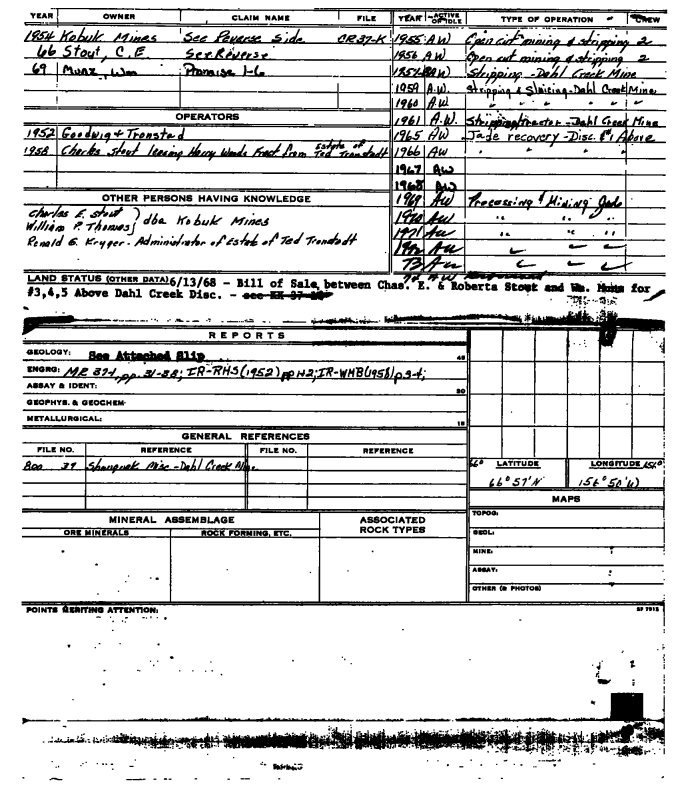 YEAR OWNER CLAIM NAME FILE YEAR ACTIVE OR IDLE TYPE OF OPERATION CREW
1954 Kobuk Mines See Reverse Side CR37-K 1955 AW Open cut mining & stripping 2
66 Stout, C.E. See Reverse 1956 AW Open cut mining & stripping 2
69 Munz, Wm Promise 1-6 AW Stripping - Dahl Creek Mine
1959 A.W. Stripping & Sluicing - Dahl Creek Mine
1960 A.W. " " " "
OPERATORS 1961 A.W. Dahl Creek Mine
1952 Goodwig & Tronstad 1965 AW Jade recovery - Disc. #1 Above
1958 Charles Stout leasing Harry Woods Fract from Estate of Ted Tronstadt 1966 AW " " "
1967 AW
1968 AW
OTHER PERSONS HAVING KNOWLEDGE 1969 AW Processing & Mining Jade
Charles E. Stout ) dba Kobuk Mines 1970 AW " " "
William P. Thomas) 1971 AW " " "
Ronald G. Kryger - Administrator of Estate of Ted Tronstadt 1972 AW
73 AW
74 AW
LAND STATUS (OTHER DATA) 6/13/68 - Bill of Sale between Chas. E. & Roberta Stout and Wm. Munz for
#3,4,5 Above Dahl Creek Disc. -
REPORTS
GEOLOGY: See Attached Slip
ENGRG: MR 37-1, pp. 31-38; IR-RHS (1952) pp 1-12; IR-WMB (1958) p 3-4;
ASSAY & IDENT:
GEOPHYS. & GEOCHEM.
METALLURGICAL:
GENERAL REFERENCES
FILE NO. REFERENCE FILE NO. REFERENCE
37 Shungnak Misc - Dahl Creek
66° LATITUDE LONGITUDE
66° 57' N 156° 50' W
MAPS
TOPOG:
GEOL:
MINE:
ASSAY:
OTHER (& PHOTOS)
MINERAL ASSEMBLAGE ASSOCIATED ROCK TYPES
ORE MINERALS ROCK FORMING, ETC.
POINTS MERITING ATTENTION: